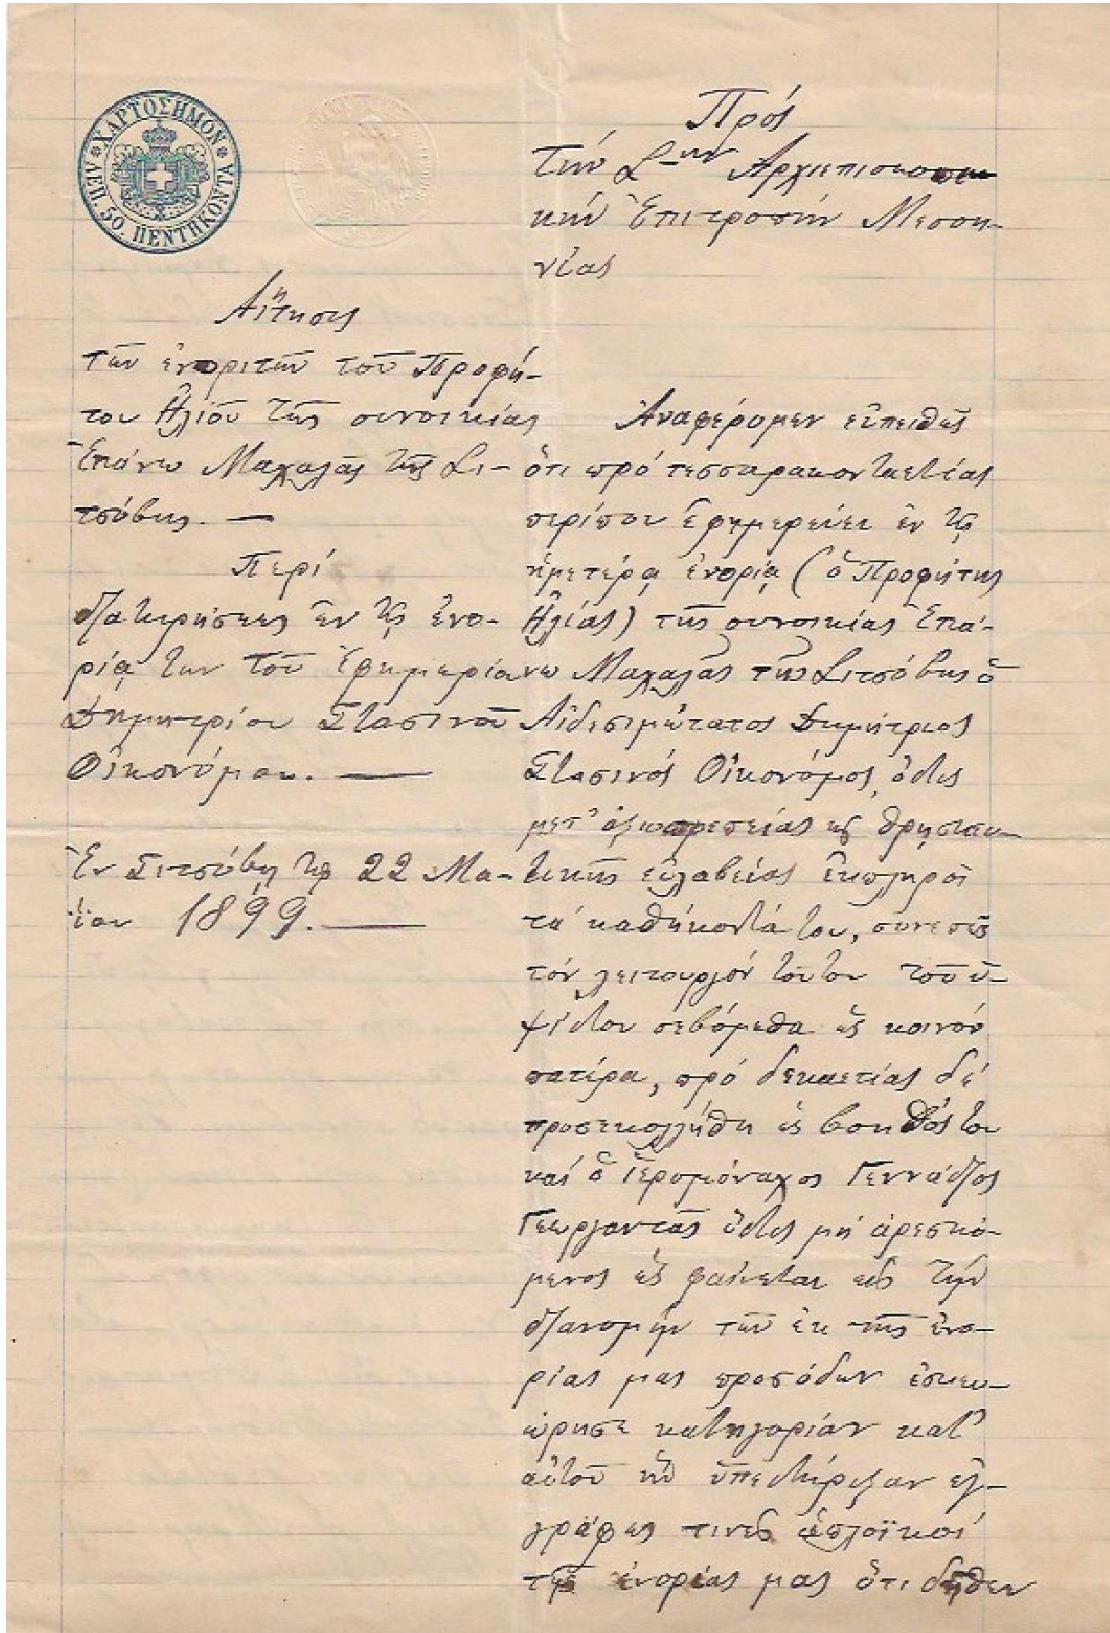 ΧΑΡΤΟΣΗΜΟΝ
ΛΕΠ. 50. ΠΕΝΤΗΚΟΝΤΑ
Πρός
τήν Σ–τήν Ἀρχιεπισκοπι
κήν Ἐπιτροπήν Μεσση–
νίας
Αἴτησις
τῶν ἐνοριτῶν τοῦ Προφή–
του Ἠλιοῦ τῆς συνοικίας
Ἐπάνω Μαχαλᾶς τῆς Σι–
τσόβης. —
Περί
διατηρήσεως ἐν τῇ ἐνο–
ρίᾳ των τοῦ Ἐφημερίου
Δημητρίου Στασινοῦ
Οἰκονόμου. —
Ἐν Σιτσόβῃ τῇ 22 Μα–
ΐου 1899. —
Ἀναφέρομεν εὐπειθῶς
ὅτι πρό τεσσαρακονταετίας
περίπου ἐφημερεύει ἐν τῇ
ἡμετέρᾳ ἐνορίᾳ (ὁ Προφήτης
Ἠλίας) τῆς συνοικίας Ἐπά–
νω Μαχαλᾶς τῆς Σιτσόβης ὁ
Αἰδεσιμώτατος Δημήτριος
Στασινός Οἰκονόμος, ὅστις
μετ' ἀξιοπρεπείας κ θρησκευ–
τικῆς εὐλαβείας ἐκπληροῖ
τά καθήκοντά του, συνεπῶς
τόν λειτουργόν τοῦτον τοῦ ὑ–
ψίστου σεβόμεθα ὡς κοινόν
πατέρα, πρό δεκαετίας δέ
προσεκολλήθη ὡς βοηθός του
καί ὁ ἱερομόναχος Γεννάδιος
Γεωργαντᾶς ὅστις μή ἀρεσκό–
μενος ὡς φαίνεται εἰς τήν
διανομήν τῶν ἐκ τῆς ἐνο–
ρίας μας προσόδων ἐσκευ–
ώρησε κατηγορίαν κατ'
αὐτοῦ ἥν ὑπεστήριξαν ἐγ–
γράφως τινές ἁπλοϊκοί
τῆς ἐνορίας μας ὅτι δῆθεν